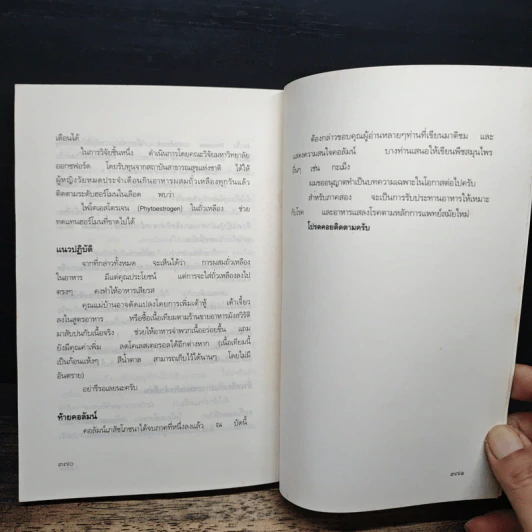 เดือนได้
ในการวิจัยชิ้นหนึ่ง ดำเนินการโดยคณะวิจัยมหาวิทยาลัย
ออกซฟอร์ด โดยรับทุนจากสถาบันสาธารณสุขแห่งชาติ ได้ให้
ผู้หญิงวัยหมดประจำเดือนกินอาหารผสมถั่วเหลืองทุกวันแล้ว
ติดตามระดับฮอร์โมนในเลือด พบว่า
ไฟโตเอสโตรเจน (Phytoestrogen) ในถั่วเหลือง ช่วย
ทดแทนฮอร์โมนที่ขาดไปได้
แนวปฏิบัติ
จากที่กล่าวทั้งหมด จะเห็นได้ว่า การผสมถั่วเหลือง
ในอาหาร มีแต่คุณประโยชน์ แต่การจะใส่ถั่วเหลืองลงไป
ตรงๆ คงทำให้อาหารเสียรส
คุณแม่บ้านอาจดัดแปลงโดยการเพิ่มเต้าหู้ เต้าเจี้ยว
ลงในสูตรอาหาร หรือซื้อเนื้อเทียมตามร้านขายอาหารมังสวิรัติ
มาสับปนกับเนื้อจริง ช่วยให้อาหารจำพวกเนื้ออร่อยขึ้น แถม
ยังมีคุณค่าเพิ่ม ลดโคเลสเตอรอลได้อีกต่างหาก (เนื้อเทียมนี้
เป็นก้อนแห้งๆ สีน้ำตาล สามารถเก็บไว้ได้นานๆ โดยไม่มี
อันตราย)
อย่ารีรอเลยนะครับ
ท้ายคอลัมน์
คอลัมน์เภสัชโภชนาได้จบภาคที่หนึ่งลงแล้ว ณ บัดนี้
๓๗๐
ต้องกล่าวขอบคุณผู้อ่านหลายๆท่านที่เขียนมาติชม และ
แสดงความสนใจคอลัมน์ บางท่านเสนอให้เขียนพืชสมุนไพร
อื่นๆ เช่น กะเม็ง
ผมขออนุญาตทำเป็นบทความเฉพาะในโอกาสต่อไปครับ
สำหรับภาคสอง จะเป็นการรับประทานอาหารให้เหมาะ
กับโรค และอาหารแสลงโรคตามหลักการแพทย์สมัยใหม่
โปรดคอยติดตามครับ
๓๗๑